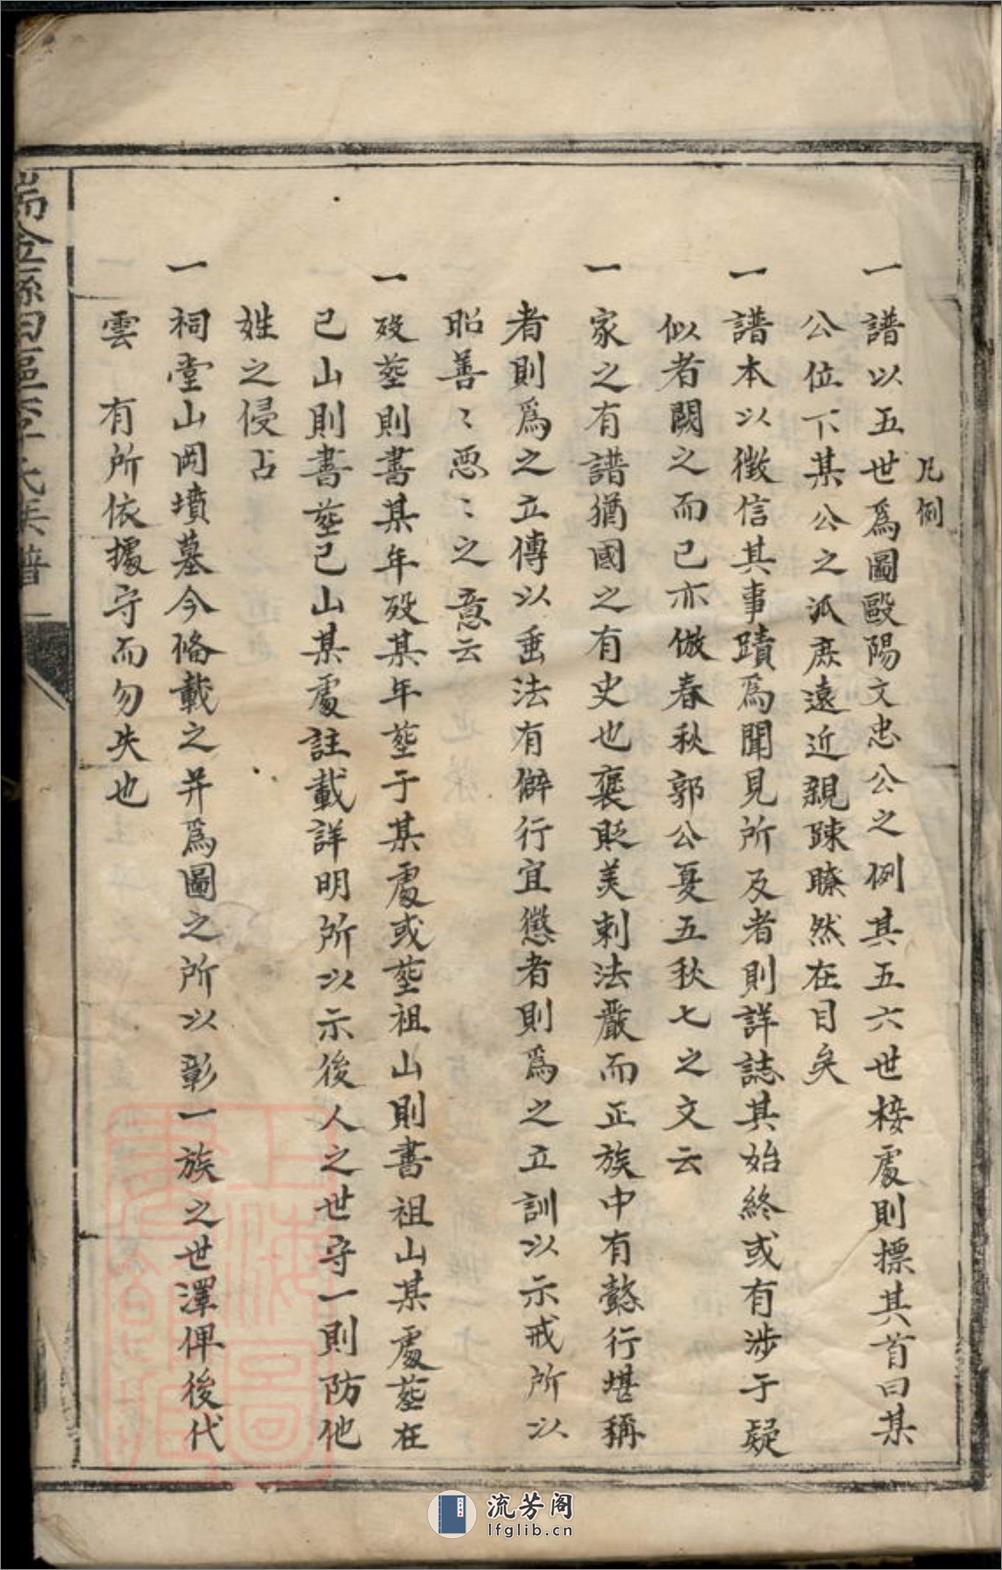 凡例
一譜以五世爲圖歐陽文忠公之例其五六世接處則摽其首曰某
公位下某公之派庶遠近親踈瞭然在目矣
一譜本以徵信其事蹟爲聞見所及者則詳誌其始終或有涉于疑
似者闕之而已亦倣春秋郭公夏五秋七之文云
一家之有譜猶國之有史也褒貶美刺法嚴而正族中有懿行堪稱
者則爲之立傳以垂法有僻行宜懲者則爲之立訓以示戒所以
昭善〻惡〻之意云
一歿塟則書某年歿某年塟于某處或塟祖山則書祖山某處塟在
已山則書塟已山某處註載詳明所以示後人之世守一則防他
姓之侵占
一祠堂山岡墳墓今俻載之并爲圖之所以彰一族之世澤俾後代
雲 有所依據守而勿失也
瑞金縣田塢李氏族譜
上海圖書館藏
流芳阁
lfglib.cn